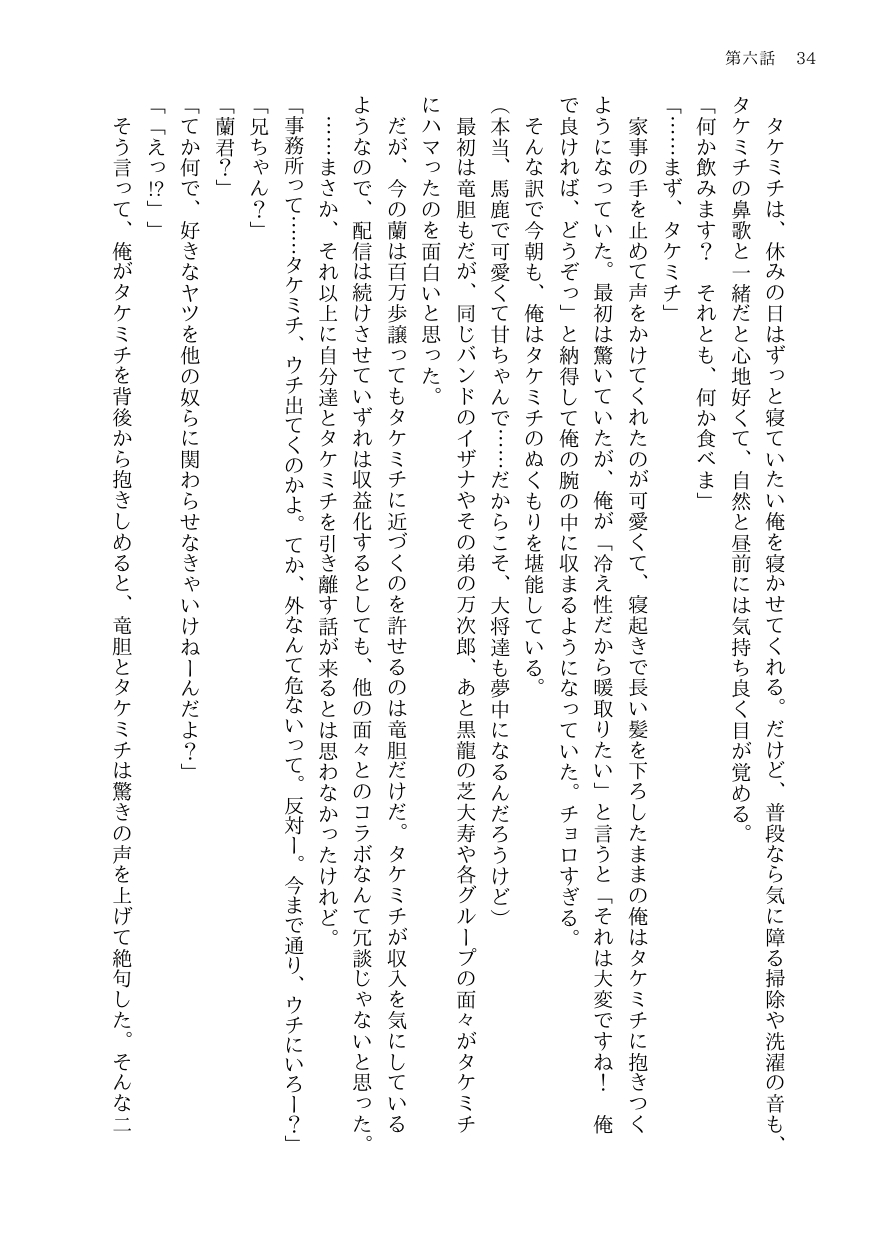 第六話　34
　タケミチは、休みの日はずっと寝ていたい俺を寝かせてくれる。だけど、普段なら気に障る掃除や洗濯の音も、
タケミチの鼻歌と一緒だと心地好くて、自然と昼前には気持ち良く目が覚める。
「何か飲みます？　それとも、何か食べま」
「……まず、タケミチ」
　家事の手を止めて声をかけてくれたのが可愛くて、寝起きで長い髪を下ろしたままの俺はタケミチに抱きつく
ようになっていた。最初は驚いていたが、俺が「冷え性だから暖取りたい」と言うと「それは大変ですね！　俺
で良ければ、どうぞっ」と納得して俺の腕の中に収まるようになっていた。チョロすぎる。
　そんな訳で今朝も、俺はタケミチのぬくもりを堪能している。
（本当、馬鹿で可愛くて甘ちゃんで……だからこそ、大将達も夢中になるんだろうけど）
　最初は竜胆もだが、同じバンドのイザナやその弟の万次郎、あと黒龍の芝大寿や各グループの面々がタケミチ
にハマったのを面白いと思った。
　だが、今の蘭は百万歩譲ってもタケミチに近づくのを許せるのは竜胆だけだ。タケミチが収入を気にしている
ようなので、配信は続けさせていずれは収益化するとしても、他の面々とのコラボなんて冗談じゃないと思った。
　……まさか、それ以上に自分達とタケミチを引き離す話が来るとは思わなかったけれど。
「事務所って……タケミチ、ウチ出てくのかよ。てか、外なんて危ないって。反対ー。今まで通り、ウチにいろー？」
「兄ちゃん？」
「蘭君？」
「てか何で、好きなヤツを他の奴らに関わらせなきゃいけねーんだよ？」
「「えっ!?」」
　そう言って、俺がタケミチを背後から抱きしめると、竜胆とタケミチは驚きの声を上げて絶句した。そんな二